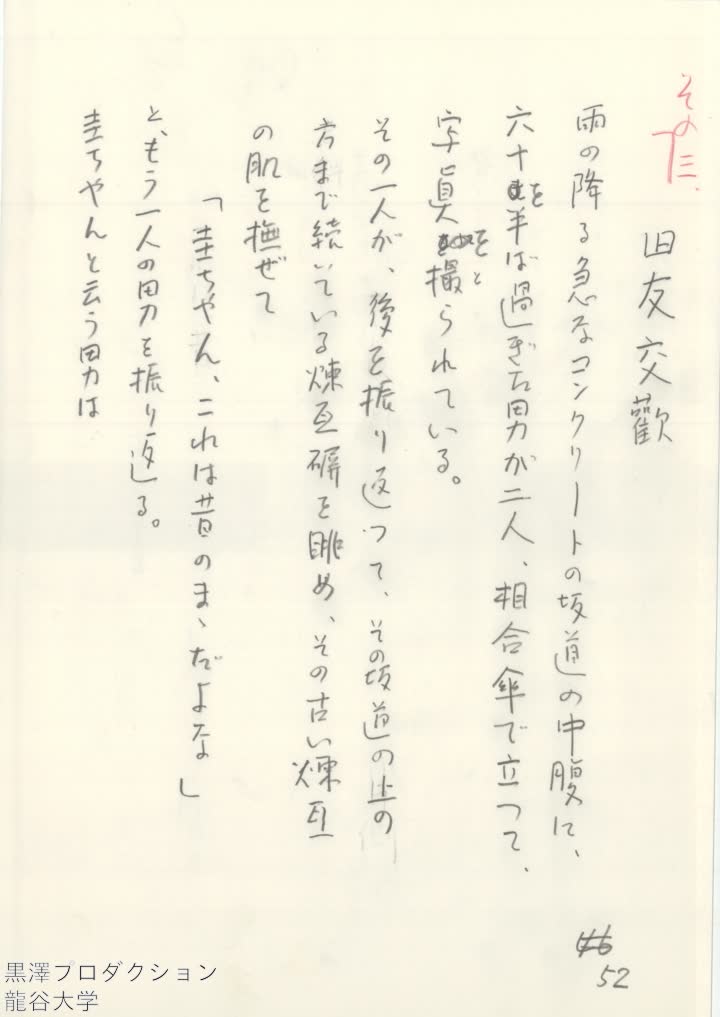 その三、
旧友交歓
雨の降る急なコンクリートの坂道の中腹に、
六十を半ば過ぎた男が二人、相合傘で立つて、
写眞を撮られている。
その一人が、後を振り返つて、その坂道の上の
方まで続いている煉瓦塀を眺め、その古い煉瓦
の肌を撫ぜて
「圭ちやん、これは昔のまゝだよな」
と、もう一人の男を振り返る。
圭ちやんと云う男は
52
黒澤プロダクション
龍谷大学